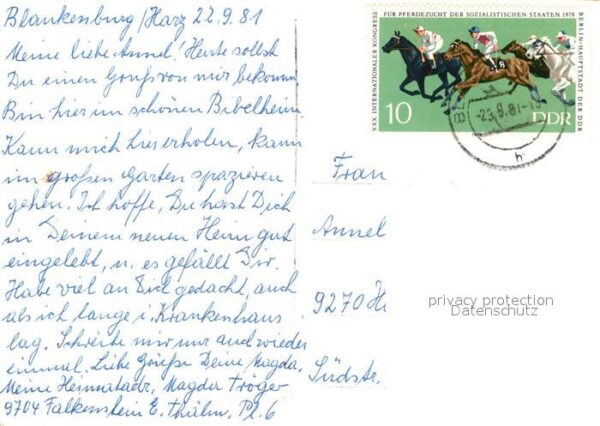 Blankenburg/Harz 22.9.81
Meine liebe Annel! Heute sollst
Du einen Gruß von mir bekomm
Bin hier im schönen Bibelheim.
Kann mich hier erholen, kann
im großen Garten spazieren
gehen. Ich hoffe, Du hast Dich
in Deinem neuen Heim gut
eingelebt, u. es gefällt Dir.
Habe viel an Dich gedacht, auch
als ich lange i. Krankenhaus
lag. Schreibe mir nur auch wieder
einmal. Liebe Grüße Deine Magda.
Meine Heimatadr. Magda Tröger
9704 Falkenstein E. Thälm. Pl. 6
XXX. INTERNATIONALER KONGRESS FÜR PFERDEZUCHT DER SOZIALISTISCHEN STAATEN 1979 BERLIN-HAUPTSTADT DER DDR
10 DDR
8
-23.9.81-
h
Frau
Annel
9270 H
Südstr.
privacy protection
Datenschutz